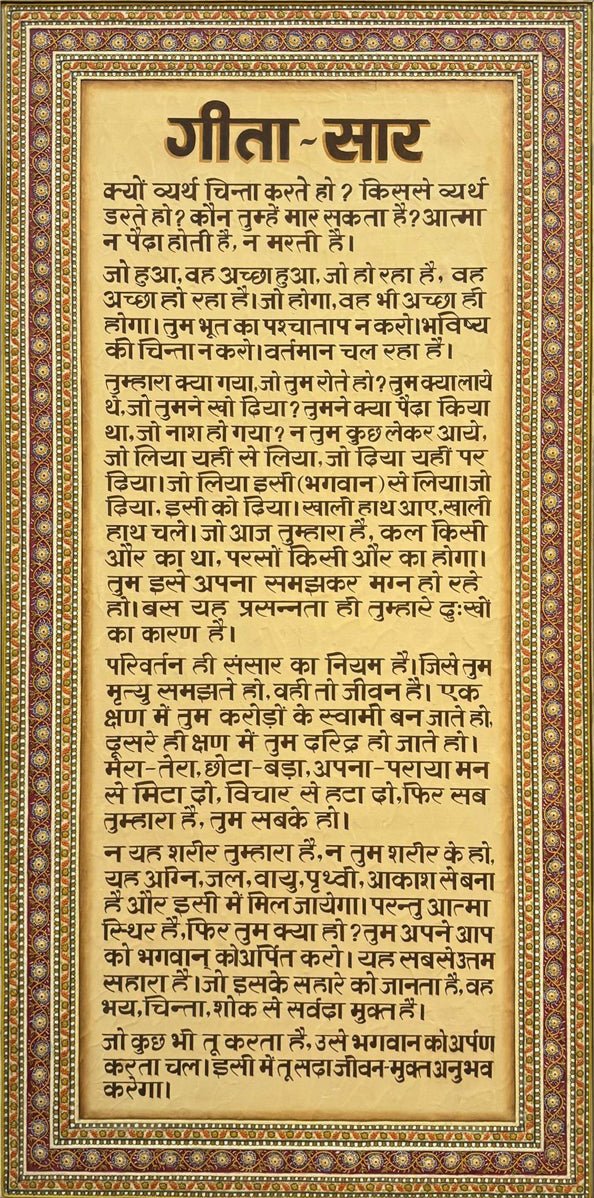 गीता ~ सार
क्यों व्यर्थ चिन्ता करते हो ? किससे व्यर्थ
डरते हो? कौन तुम्हें मार सकता है? आत्मा
न पैदा होती है, न मरती है।
जो हुआ, वह अच्छा हुआ, जो हो रहा है, वह
अच्छा हो रहा है। जो होगा, वह भी अच्छा ही
होगा। तुम भूत का पश्चाताप न करो। भविष्य
की चिन्ता न करो। वर्तमान चल रहा है।
तुम्हारा क्या गया, जो तुम रोते हो? तुम क्या लाये
थे, जो तुमने खो दिया? तुमने क्या पैदा किया
था, जो नाश हो गया? न तुम कुछ लेकर आये,
जो लिया यहीं से लिया, जो दिया यहीं पर
दिया। जो लिया इसी (भगवान) से लिया। जो
दिया, इसी को दिया। खाली हाथ आए, खाली
हाथ चले। जो आज तुम्हारा है, कल किसी
और का था, परसों किसी और का होगा।
तुम इसे अपना समझकर मग्न हो रहे
हो। बस यह प्रसन्नता ही तुम्हारे दुःखों
का कारण है।
परिवर्तन ही संसार का नियम है। जिसे तुम
मृत्यु समझते हो, वही तो जीवन है। एक
क्षण में तुम करोड़ों के स्वामी बन जाते हो,
दूसरे ही क्षण में तुम दरिद्र हो जाते हो।
मेरा-तेरा, छोटा-बड़ा, अपना-पराया मन
से मिटा दो, विचार से हटा दो, फिर सब
तुम्हारा है, तुम सबके हो।
न यह शरीर तुम्हारा है, न तुम शरीर के हो,
यह अग्नि, जल, वायु, पृथ्वी, आकाश से बना
है और इसी में मिल जायेगा। परन्तु आत्मा
स्थिर है, फिर तुम क्या हो? तुम अपने आप
को भगवान् को अर्पित करो। यह सबसे उत्तम
सहारा है। जो इसके सहारे को जानता है, वह
भय, चिन्ता, शोक से सर्वदा मुक्त है।
जो कुछ भी तू करता है, उसे भगवान को अर्पण
करता चल। इसी में तू सदा जीवन-मुक्त अनुभव
करेगा।